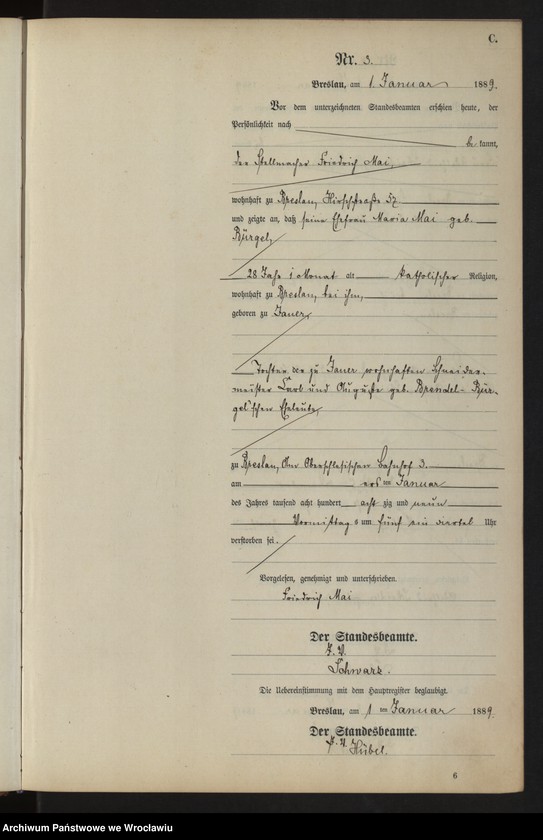 C.
Nr. 3.
Breslau, am 1. Januar 1889.
Vor dem unterzeichneten Standesbeamten erschien heute, der
Persönlichkeit nach
be kannt,
der Stellmacher Friedrich Mai,
wohnhaft zu Breslau, Hirschstraße 57
und zeigte an, daß seine Ehefrau Maria Mai geb.
Bürgel,
28 Jahr 1 Monat alt katholischer Religion,
wohnhaft zu Breslau, bei ihm,
geboren zu Jauer,
Tochter der zu Jauer wohnhaften Schneider-
meister Carl und Auguste geb. Brendel-Bür-
gel'schen Eheleute,
zu Breslau, Am Oberschlesischen Bahnhof 3.
am ersten Januar
des Jahres tausend acht hundert acht zig und neun
Vormittag s um fünf ein viertel Uhr
verstorben sei.
Vorgelesen, genehmigt und unterschrieben.
Friedrich Mai
Der Standesbeamte.
J. V.
Schwarz.
Die Uebereinstimmung mit dem Hauptregister beglaubigt.
Breslau, am 1 ten Januar 1889.
Der Standesbeamte.
J. V. Hübel.
6
Archiwum Państwowe we Wrocławiu